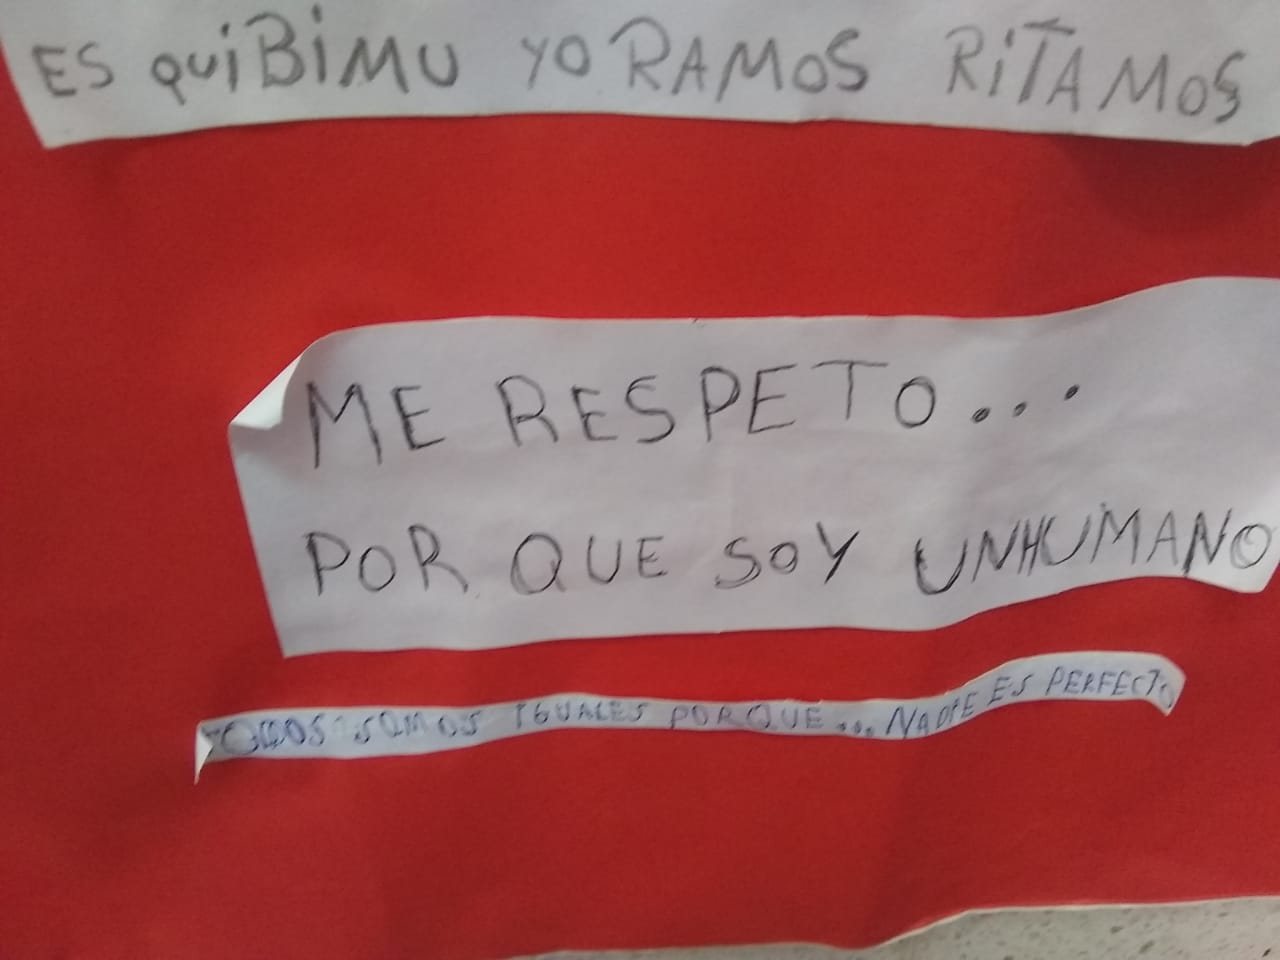 ES quiBiMU YO RAMOS RiTAMOS
ME RESPETO...
POR QUE SOY UNHUMANO
TODOS SOMOS IGUALES PORQUE... NADIE ES PERFECTO